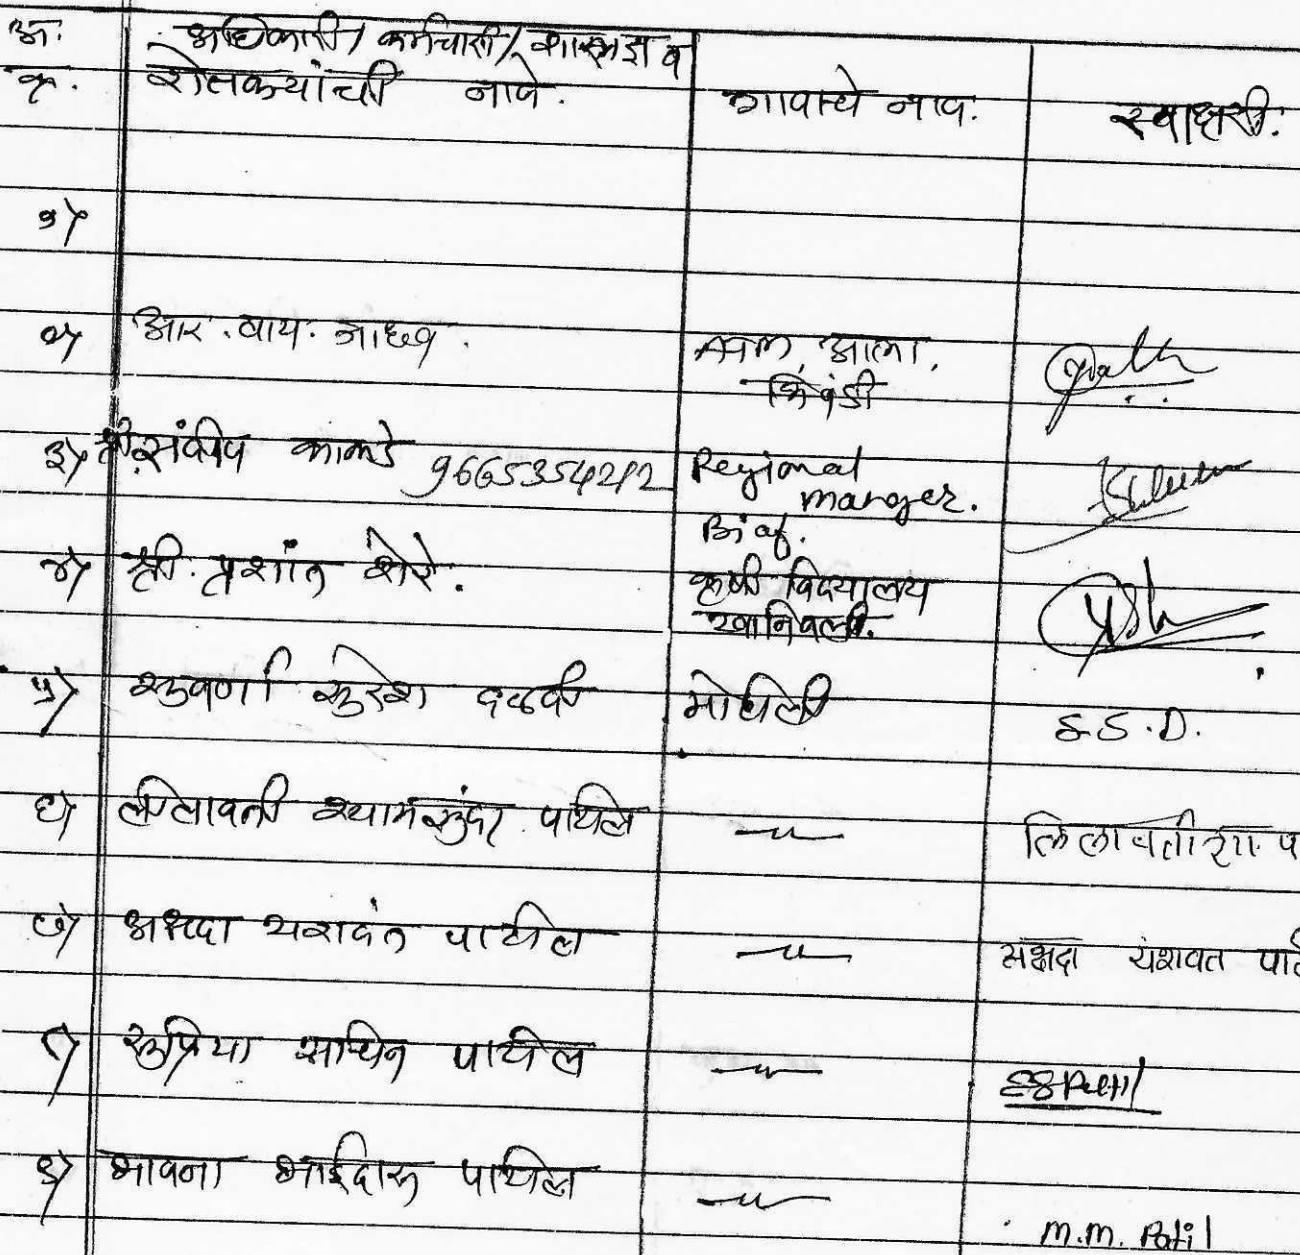 अ. अधिकारी/ कर्मचारी/ शास्त्रज्ञ व
क्र. शेतकऱ्यांची नावे. गावाचे नाव. स्वाक्षरी.
१)
२) आर. वाय. जाधव. आत्मा,
भिवंडी
३) श्री. संदीप काकडे 9665354212 Regional
manager.
Biaf.
४) श्री. प्रशांत शेरे. कृषी विद्यालय
खानिवली.
५) सुवर्णा सुरेश दळवी मोहिली S.S.D.
६) लीलावती श्यामसुंदर पाटील —"— लिलावती शा. प
७) यशवंत पाटील —"— यशवंत पाटी
८) सुप्रिया सचिन पाटील —"— SSPatil
९) भावना भाईदास पाटील —"—
M.M. Patil